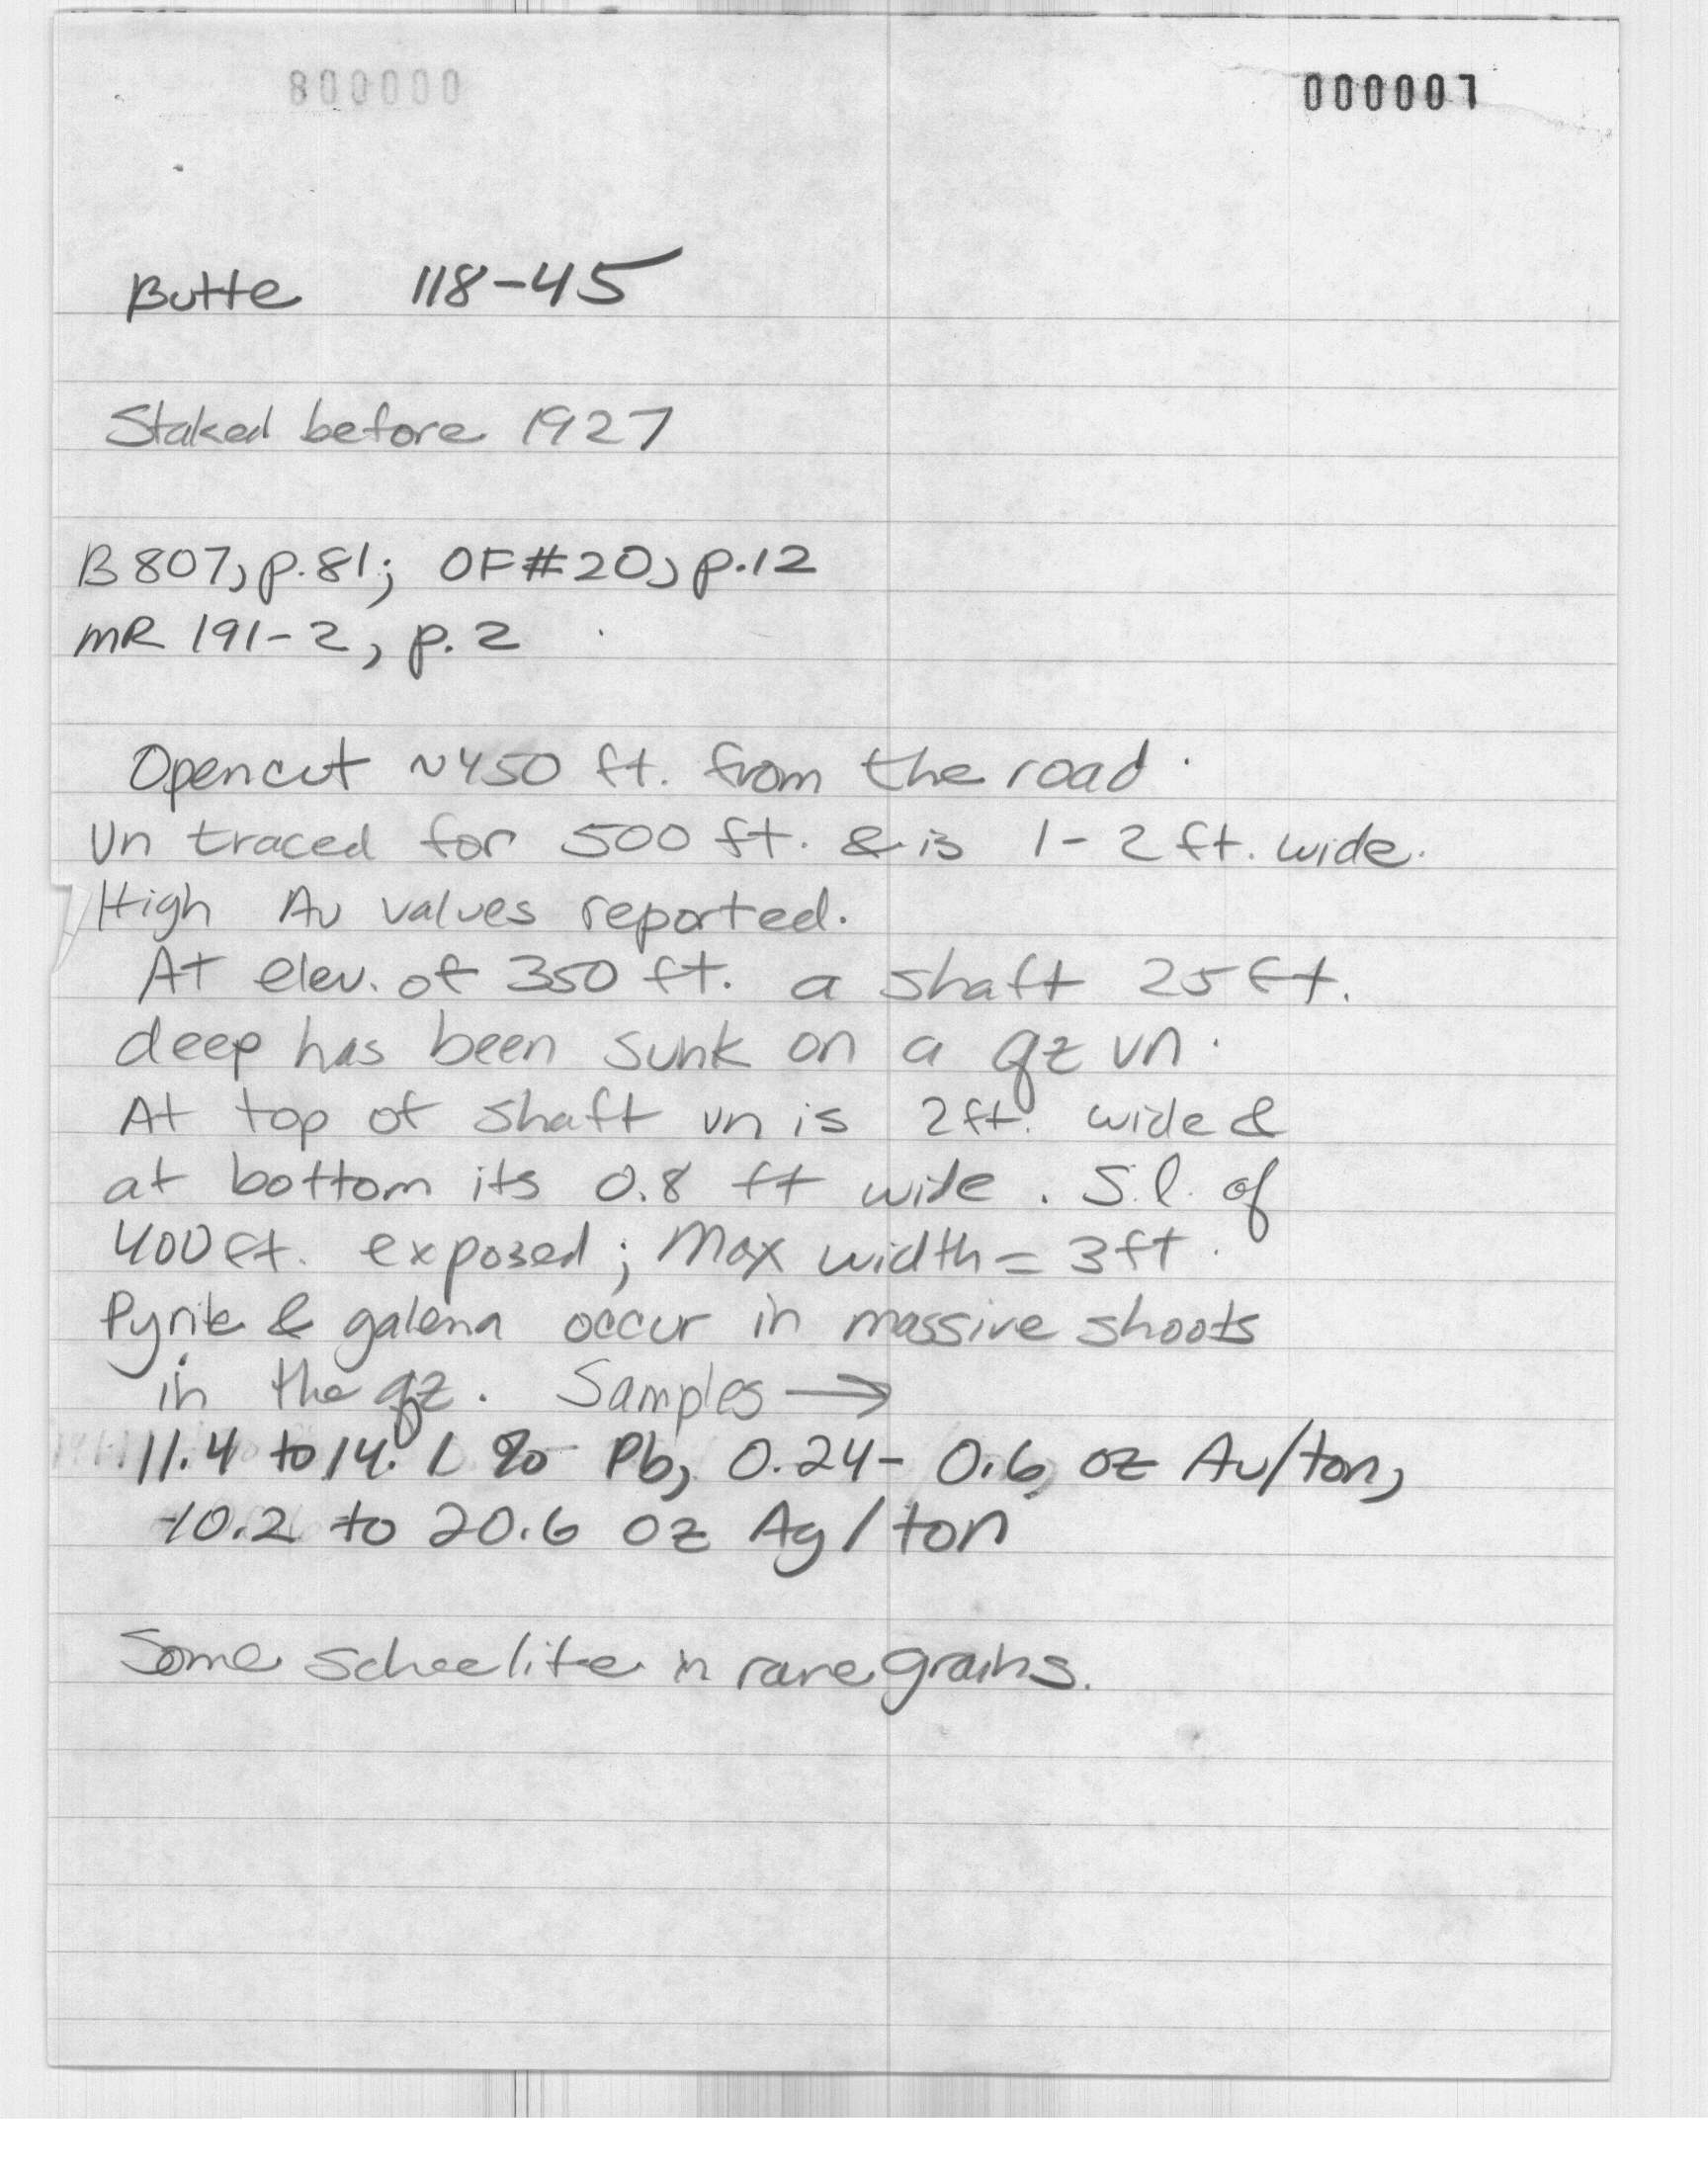 800000
000007
Butte 118-45
Staked before 1927
B 807, p.81; OF#20, p.12
MR 191-2, p.2
Opencut ~450 ft. from the road.
Vn traced for 500 ft. & is 1-2 ft. wide.
High Au values reported.
At elev. of 350 ft. a shaft 25 ft.
deep has been sunk on a qz vn.
At top of shaft vn is 2 ft. wide &
at bottom its 0.8 ft wide. S.l. of
400 ft. exposed; Max width = 3 ft.
Pyrite & galena occur in massive shoots
in the qz. Samples →
11.4 to 14.1 % Pb, 0.24- 0.6 oz Au/ton,
10.2 to 20.6 oz Ag/ton
Some scheelite in rare grains.